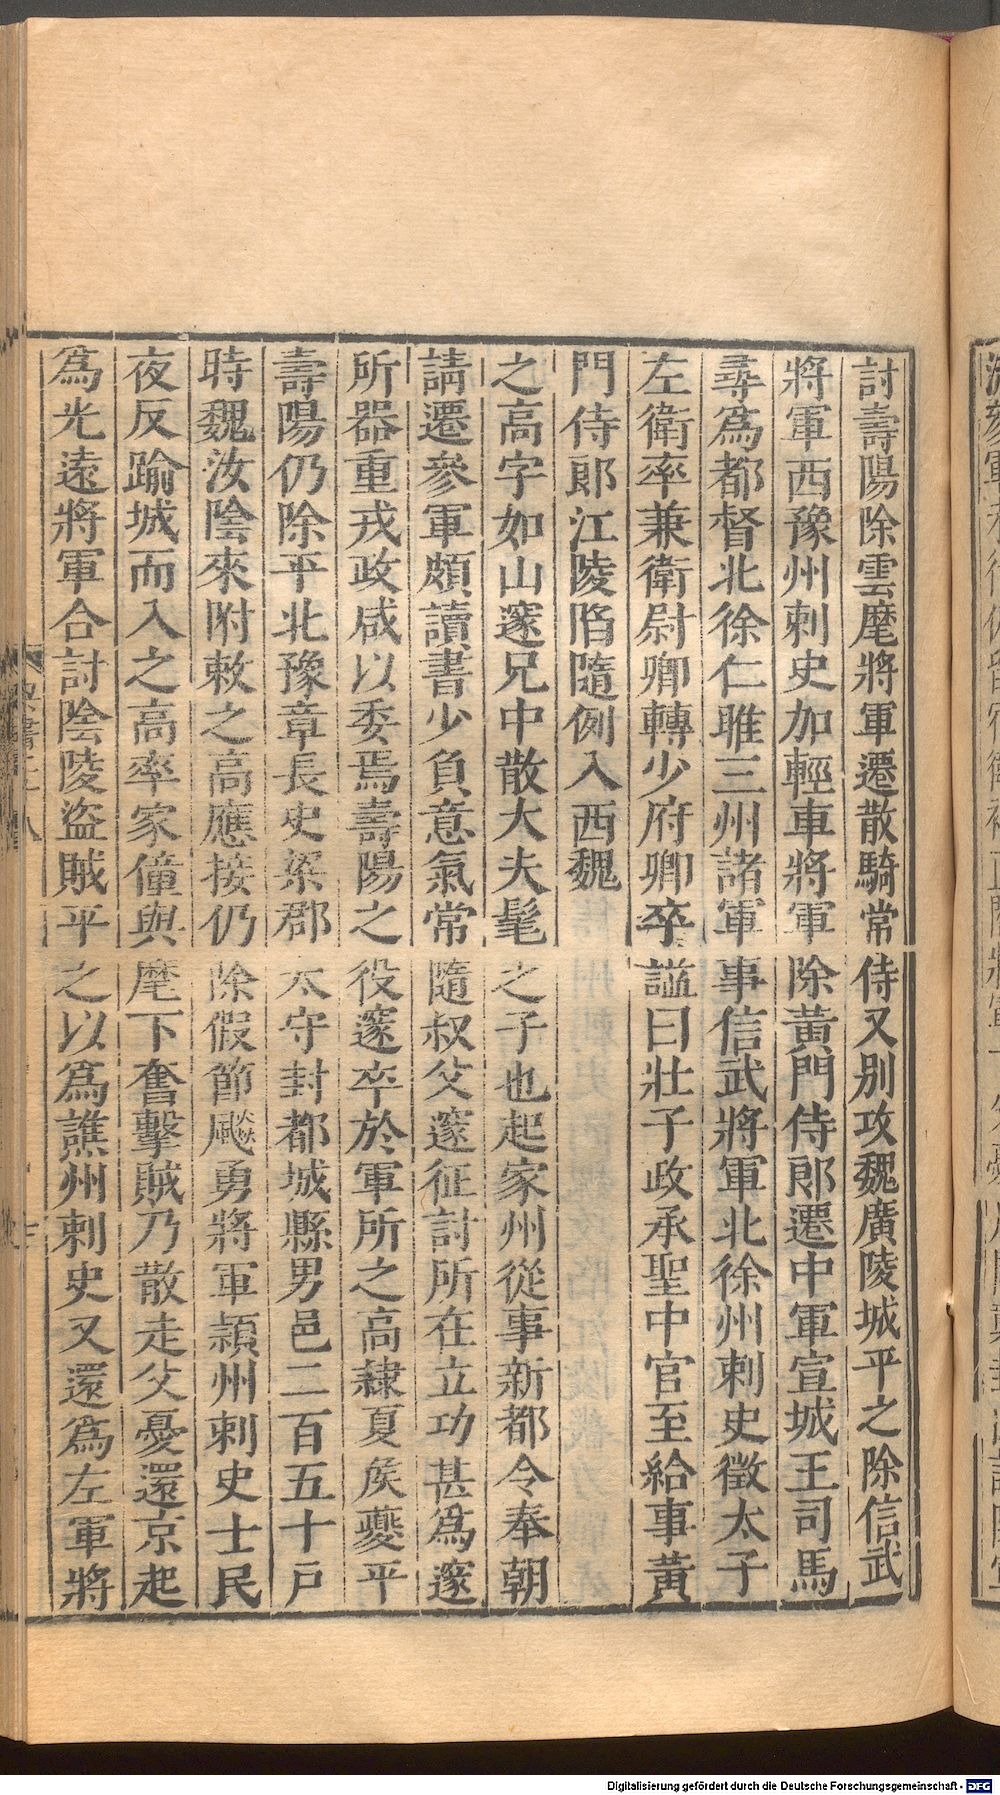 討壽陽除雲麾將軍遷散騎常侍又別攻魏廣陵城平之除信武
將軍西豫州刺史加輕車將軍除黃門侍郎遷中軍宣城王司馬
尋爲都督北徐仁睢三州諸軍事信武將軍北徐州刺史徵太子
左衛率兼衛尉卿轉少府卿卒謚曰壯子政承聖中官至給事黃
門侍郎江陵陷隨例入西魏
之高字如山邃兄中散大夫髦之子也起家州從事新都令奉朝
請遷參軍頗讀書少負意氣常隨叔父邃征討所在立功甚爲邃
所器重戎政咸以委焉壽陽之役邃卒於軍所之高隸夏侯夔平
壽陽仍除平北豫章長史梁郡太守封都城縣男邑二百五十戶
時魏汝陰來附敕之高應接仍除假節飈勇將軍潁州刺史士民
夜反踰城而入之高率家僮與麾下奮擊賊乃散走父憂還京起
爲光遠將軍合討陰陵盜賊平之以爲譙州刺史又還爲左軍將
Digitalisierung gefördert durch die Deutsche Forschungsgemeinschaft - DFG